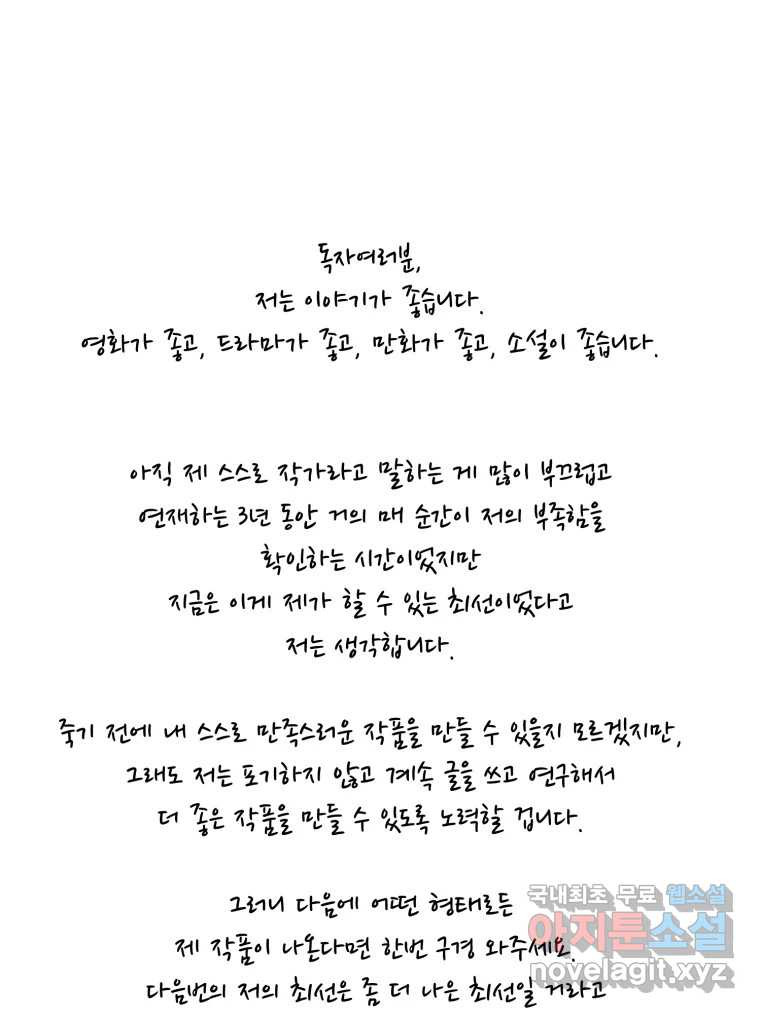 독자여러분,
저는 이야기가 좋습니다.
영화가 좋고, 드라마가 좋고, 만화가 좋고, 소설이 좋습니다.
아직 제 스스로 작가라고 말하는 게 많이 부끄럽고
연재하는 3년 동안 거의 매 순간이 저의 부족함을
확인하는 시간이었지만
지금은 이게 제가 할 수 있는 최선이었다고
저는 생각합니다.
죽기 전에 내 스스로 만족스러운 작품을 만들 수 있을지 모르겠지만,
그래도 저는 포기하지 않고 계속 글을 쓰고 연구해서
더 좋은 작품을 만들 수 있도록 노력할 겁니다.
그러니 다음에 어떤 형태로든
제 작품이 나온다면 한번 구경 와주세요.
다음번의 저의 최선은 좀 더 나은 최선일 거라고
국내최초 무료 웹소설
아지툰소설
novelagit.xyz